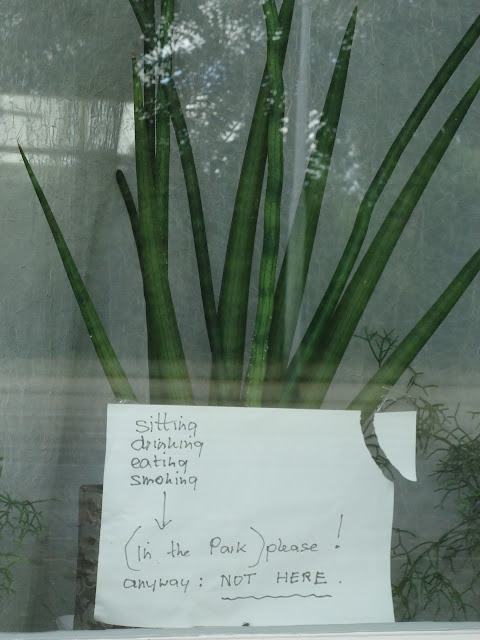 sitting
drinking
eating
smoking
(in the Park) please !
anyway: NOT HERE.